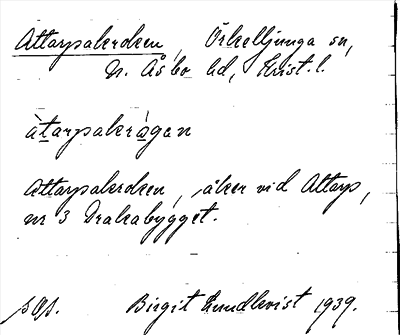 Attarpsakerdeen, Örkelljunga sn,
N. Åsbo hd, Krist. l.
àtarpsakrågen
Attarpsakerdeen, åker vid Attarp,
nr 3 Drakabygget.
Birgit Lundkvist 1939.